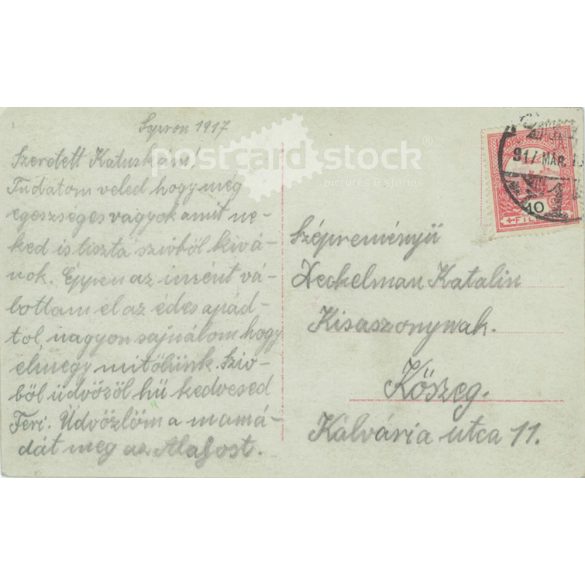 Sopron 1917
Szeretett Katuskám!
Tudatom veled hogy még
egeszseges vagyok amit ne-
ked is tiszta szivböl kivá-
nok. Éppen az imént vá-
lottam el az édes apád-
tol, nagyon sajnálom hogy
elmegy mitölünk. Sziv-
böl üdvözöl hü kedvesed
Feri. Üdvözlöm a mamá-
dát meg az
postcard stock
pictures & stories
917 MAR. 13
10
Szépreményü
Heckelman Katalin
Kisaszonynak.
Köszeg.
Kalvária utca 11.